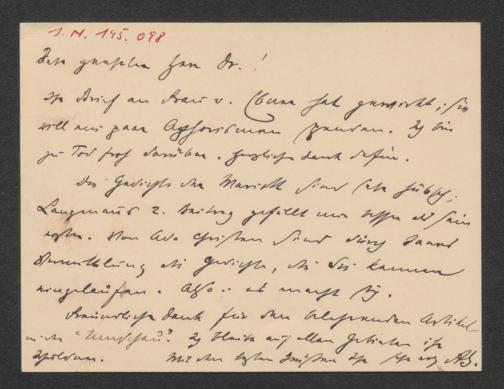 I.N. 145.098
Sehr geehrter Herr Dr.!
Ihr Brief an Frau v. Ebner hat gewirkt; sie
will ein paar Aphorismen senden. Ich bin
zu Tod froh darüber. Herzlichen Dank dafür.
Die Gedichte der Mariott sind sehr hübsch;
Langmanns 2. Beitrag gefällt mir besser als sein
erster. Von Ada Christen sind durch
Vermittlung die Gedichte, die Sie kennen
eingelaufen. Also: es macht sich.
Freundlichen Dank für den Artikel
in der "Rundschau". Ich bleibe auf allen Gebieten Ihr
Schuldner. Mit den besten Grüßen Ihr